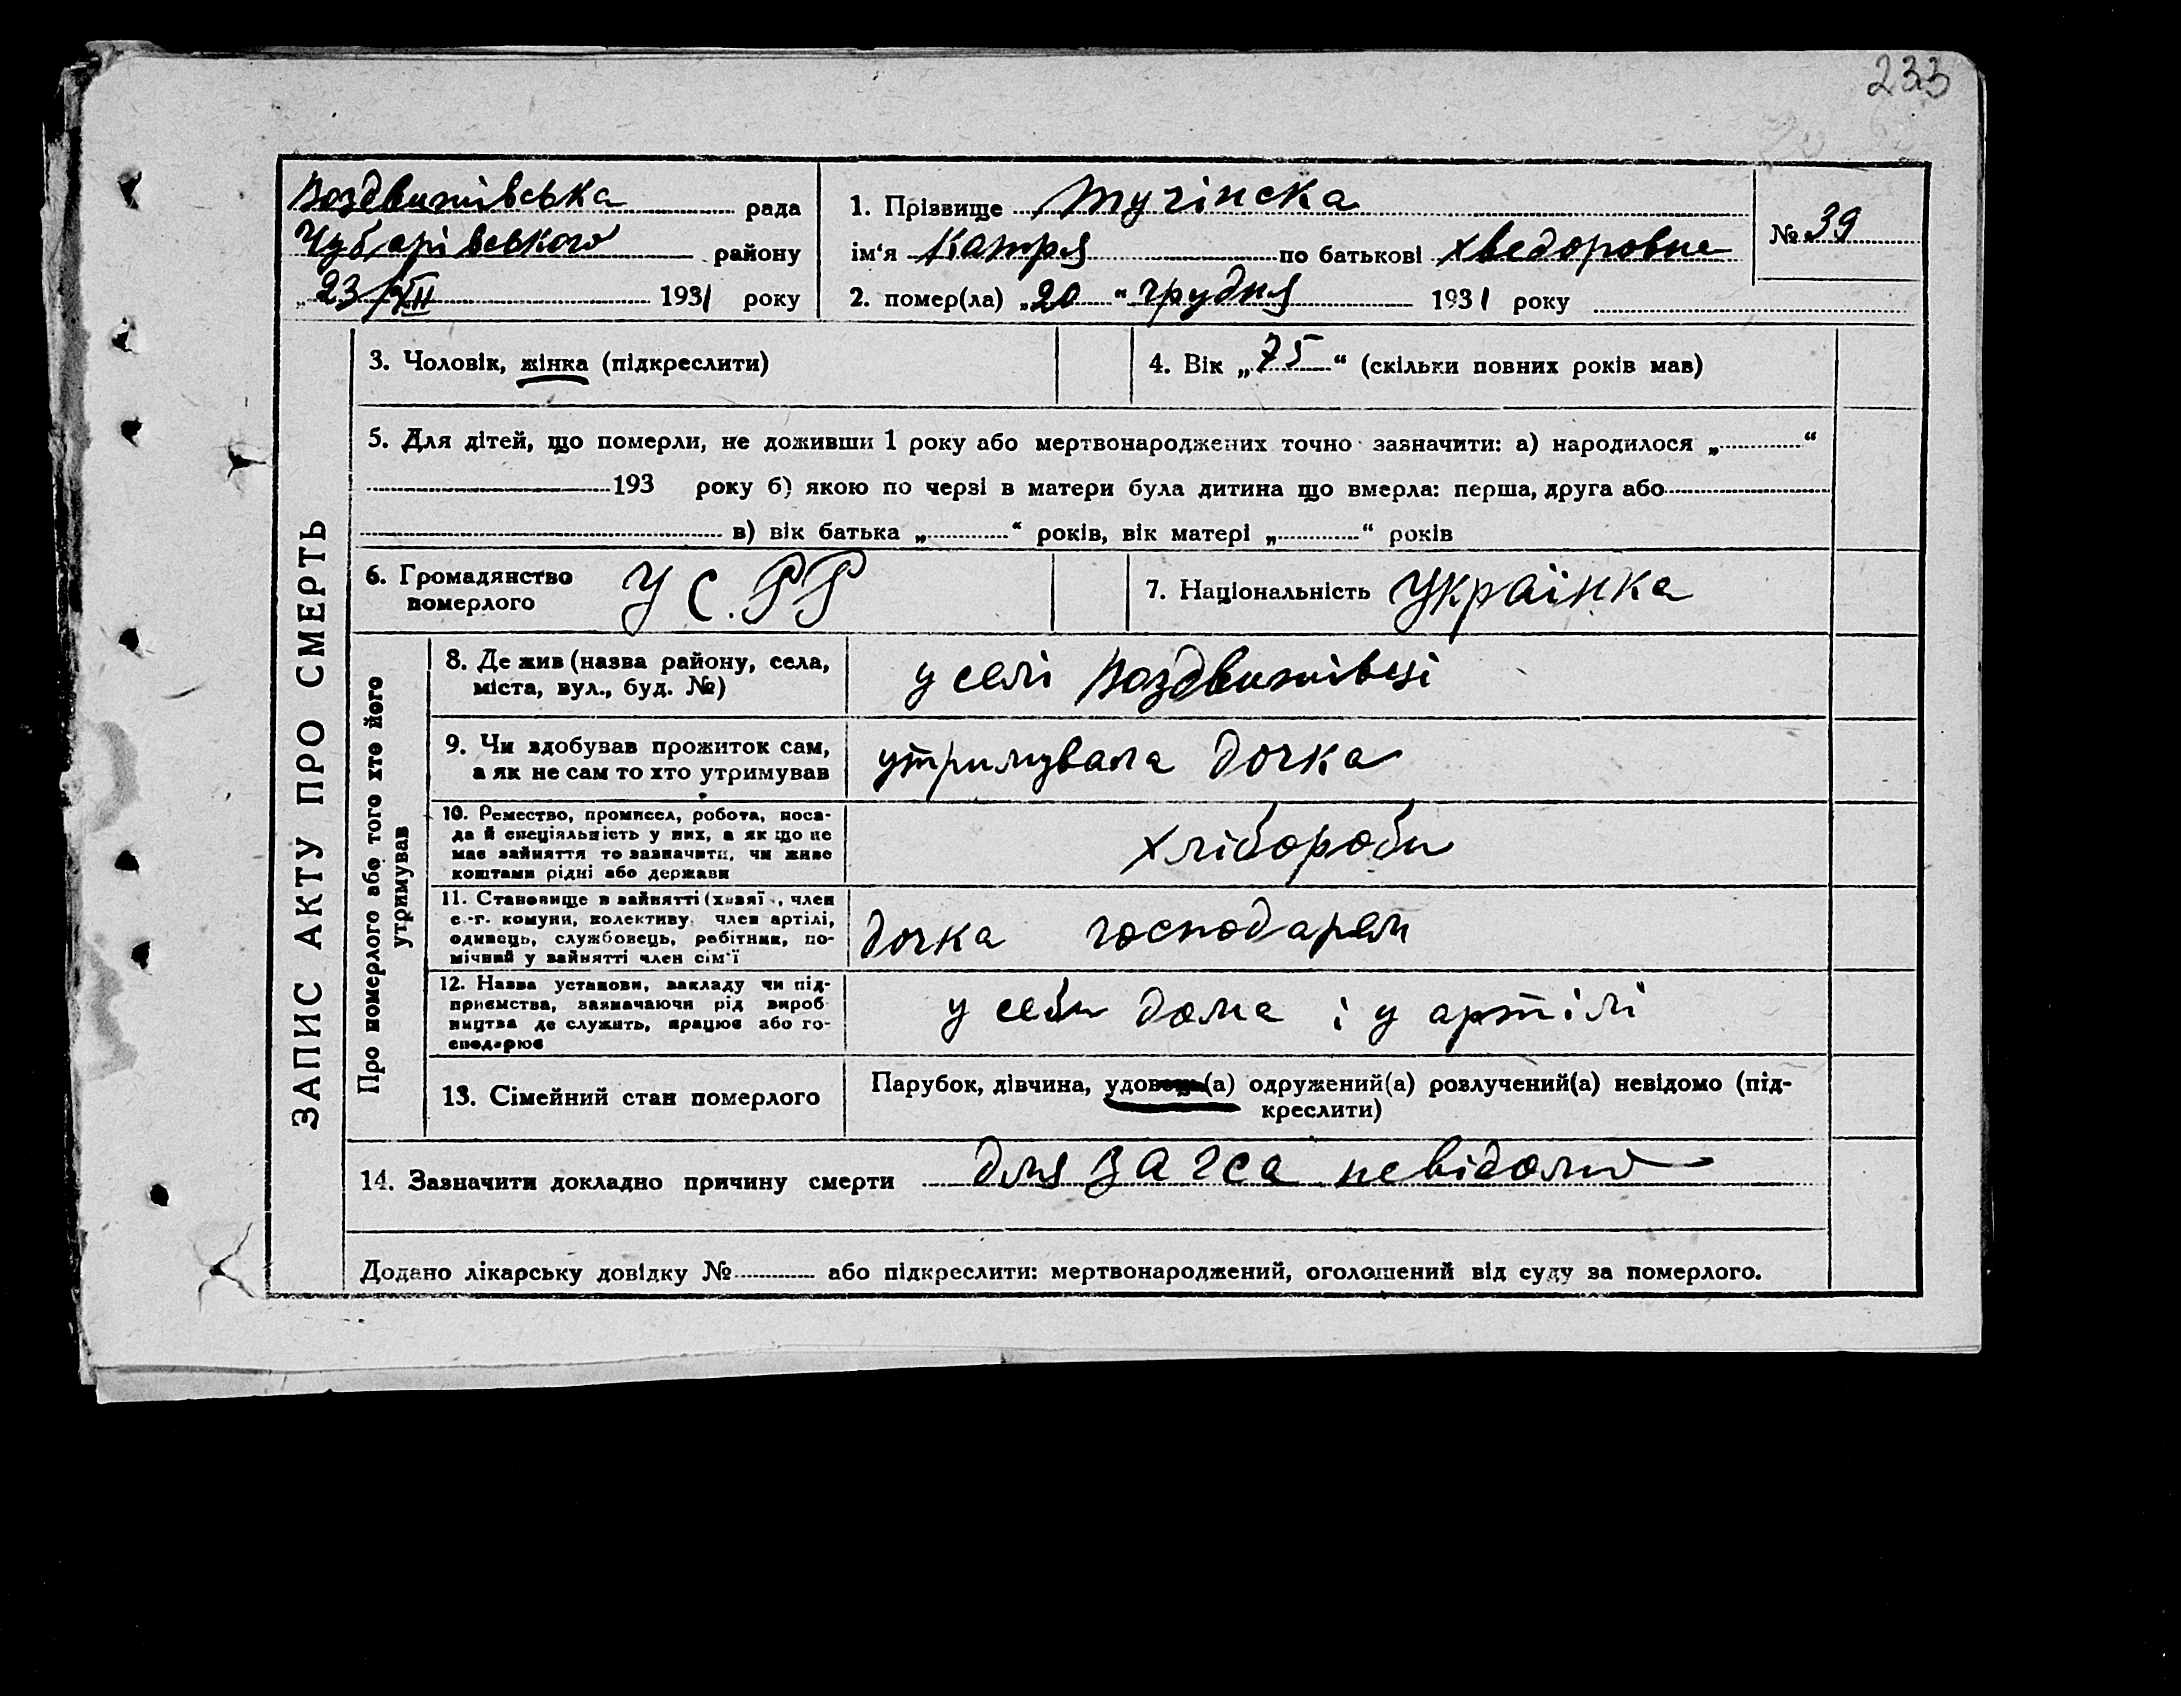 233
Воздвижівська рада
Чубарівського району
„23/XII 1931 року
1. Прізвище Тучінска
ім‘я Катря по батькові Хведоровна
2. помер(ла) „20“ грудня 1931 року
№ 39
ЗАПИС АКТУ ПРО СМЕРТЬ
3. Чоловік, жінка (підкреслити)
4. Вік „75“ (скільки повних років мав)
5. Для дітей, що померли, не доживши 1 року або мертвонароджених точно зазначити: а) народилося „ “
193 року б) якою по черзі в матери була дитина що вмерла: перша, друга або
в) вік батька „ “ років, вік матері „ “ років
6. Громадянство
померлого
УС.РР
7. Національність Українка
Про померлого або того хто його
утримував
8. Де жив (назва району, села,
міста, вул., буд. №)
у селі Воздвижівці
9. Чи здобував прожиток сам,
а як не сам то хто утримував
утримувала дочка
10. Ремество, промисел, робота, поса-
да й спеціяльність у них, а як що не
має зайняття то зазначити, чи живе
коштами рідні або держави
хлібороби
11. Становище в зайнятті (хазяї , член
с.-г. комуни, колективу, член артілі,
одинець, службовець, робітник, по-
мічний у зайнятті член сім‘ї
дочка господарем
12. Назва установи, закладу чи під-
приємства, зазначаючи рід вироб
ництва де служить, працює або го-
сподарює
у себи дома і у артілі
13. Сімейний стан померлого
Парубок, дівчина, удовець(а) одружений(а) розлучений(а) невідомо (під-
креслити)
14. Зазначити докладно причину смерти для загса невідомо
Додано лікарську довідку № або підкреслити: мертвонароджений, оголошений від суду за померлого.